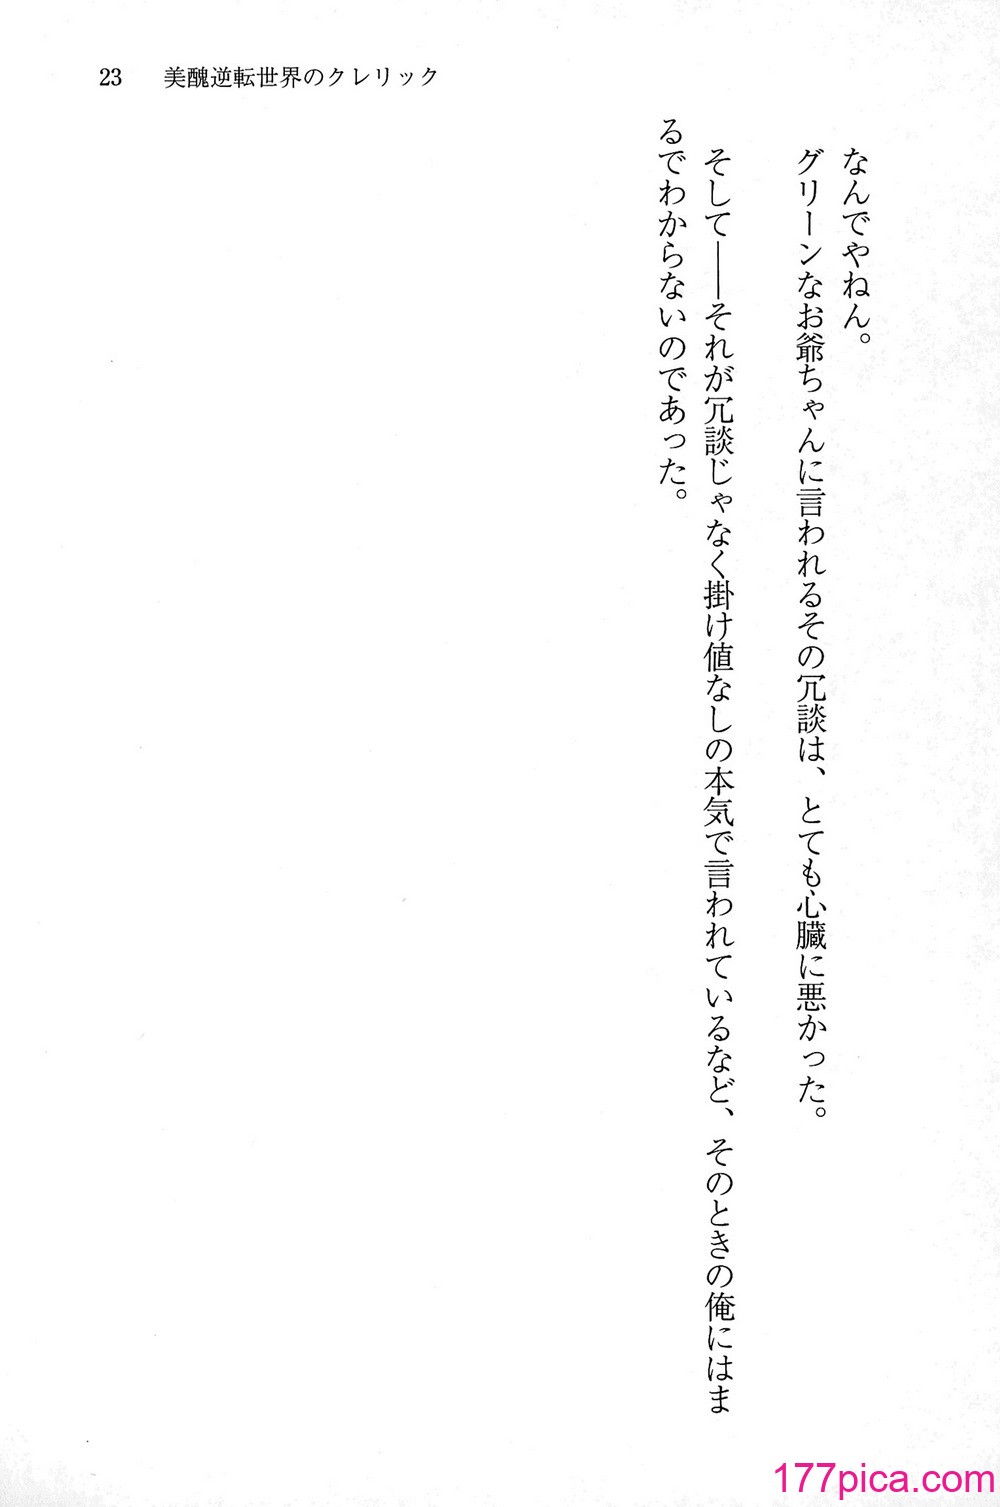 23 美醜逆転世界のクレリック
なんでやねん。
グリーンなお爺ちゃんに言われるその冗談は、とても心臓に悪かった。
そして――それが冗談じゃなく掛け値なしの本気で言われているなど、そのときの俺にはま
るでわからないのであった。
177pica.com